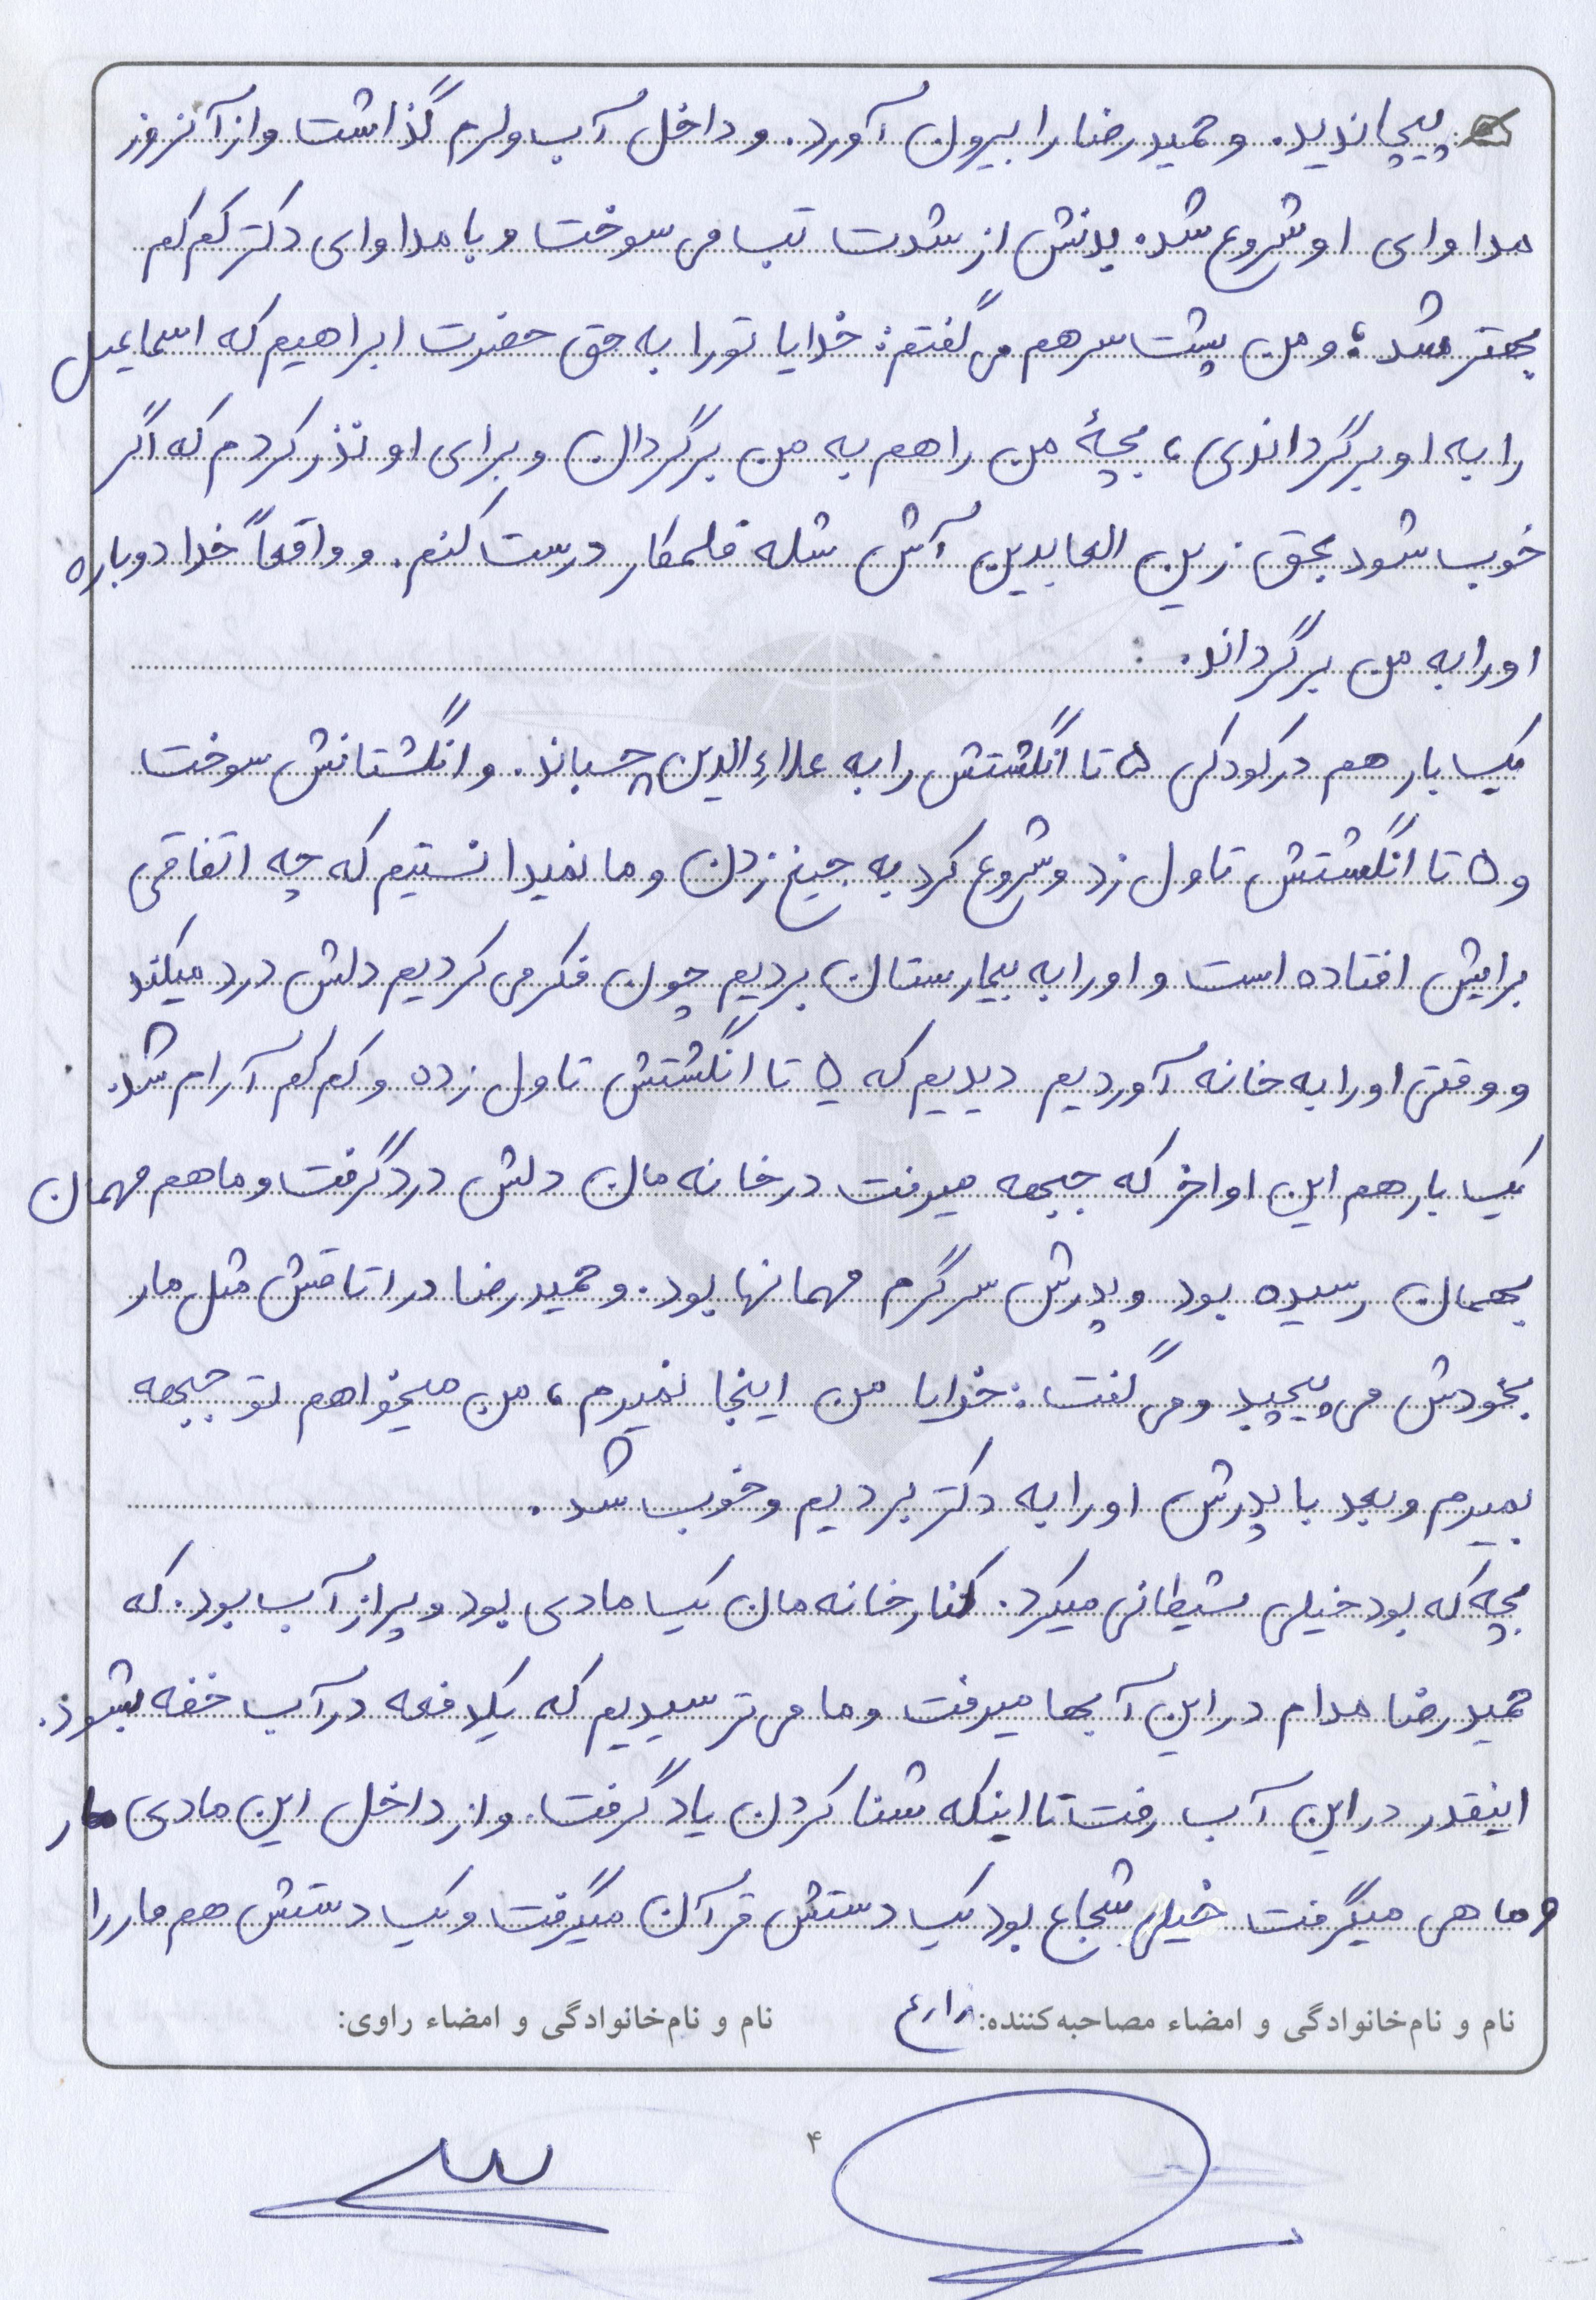 پیچاندید. و حمیدرضا را بیرون آورد. و داخل آب ولرم گذاشت و از آنروز
مداوای او شروع شد. بدنش از شدت تب می سوخت و با مداوای دکتر کم کم
بهتر شد، و من پشت سر هم می گفتم: خدایا تو را به حق حضرت ابراهیم که اسماعیل
را به او برگرداندی، بچهٔ من را هم به من برگردان و برای او نذر کردم که اگر
خوب شود بحق زین العابدین آش شله قلمکار درست کنم. و واقعاً خدا دوباره
او را به من برگرداند.
یک بار هم در کودکی ۵ تا انگشتش را به علاءالدین چسباند. و انگشتانش سوخت
و ۵ تا انگشتش تاول زد و شروع کرد به جیغ زدن و ما نمیدانستیم که چه اتفاقی
برایش افتاده است و او را به بیمارستان بردیم چون فکر می کردیم دلش درد میکند
و وقتی او را به خانه آوردیم دیدیم که ۵ تا انگشتش تاول زده و کم کم آرام شد.
یک بار هم این اواخر که جبهه میرفت در خانه مان دلش درد گرفت و ما هم مهمان
بهمان رسیده بود و پدرش سرگرم مهمانها بود. و حمیدرضا در اتاقش مثل مار
بخودش می پیچید و می گفت: خدایا من اینجا نمیرم، من میخواهم تو جبهه
بمیرم و بعد با پدرش او را به دکتر بردیم و خوب شد.
بچه که بود خیلی شیطانی میکرد. کنار خانه مان یک مادی بود و پر از آب بود. که
حمیدرضا مدام در این آبها میرفت و ما می ترسیدیم که یکدفعه در آب خفه بشود.
اینقدر در این آب رفت تا اینکه شنا کردن یاد گرفت. و از داخل این مادی مار
و ماهی میگرفت خیلی شجاع بود یک دستش قرآن میگرفت و یک دستش هم مار را
نام و نام‌خانوادگی و امضاء مصاحبه‌کننده: زارع
نام و نام‌خانوادگی و امضاء راوی:
۴